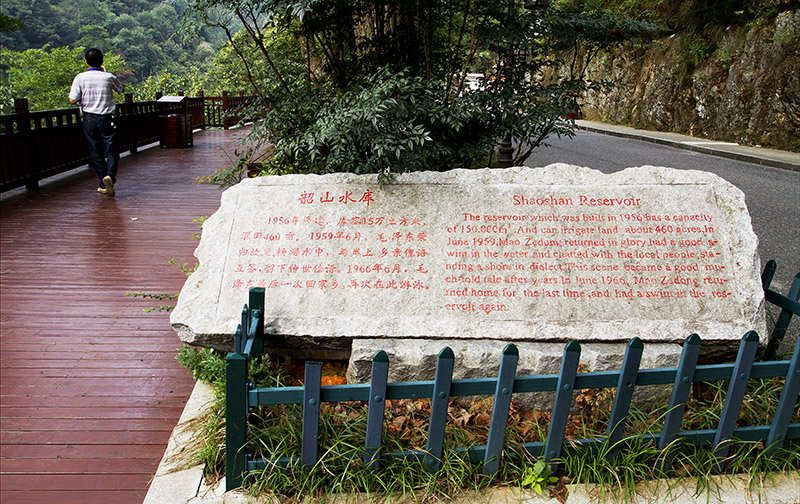 韶山水库
1956年修造，库容15万立方米，
灌田460亩。1959年6月，毛泽东荣
归故里，畅游水中，与岸上乡亲俚语
互答，留下传世佳话。1966年6月，毛
泽东最后一次回家乡，再次在此游泳。
Shaoshan Reservoir
The reservoir which was built in 1956 has a capacity
of 150,000m³. And can irrigate land about 460 acres. In
June 1959, Mao Zedong returned in glory, had a good s-
wim in the water and chatted with the local people sta-
nding ashore in dialect. This scene became a good mu-
ch-told tale after years. In June 1966, Mao Zedong retu-
rned home for the last time, and had a swim in the res-
ervoir again.